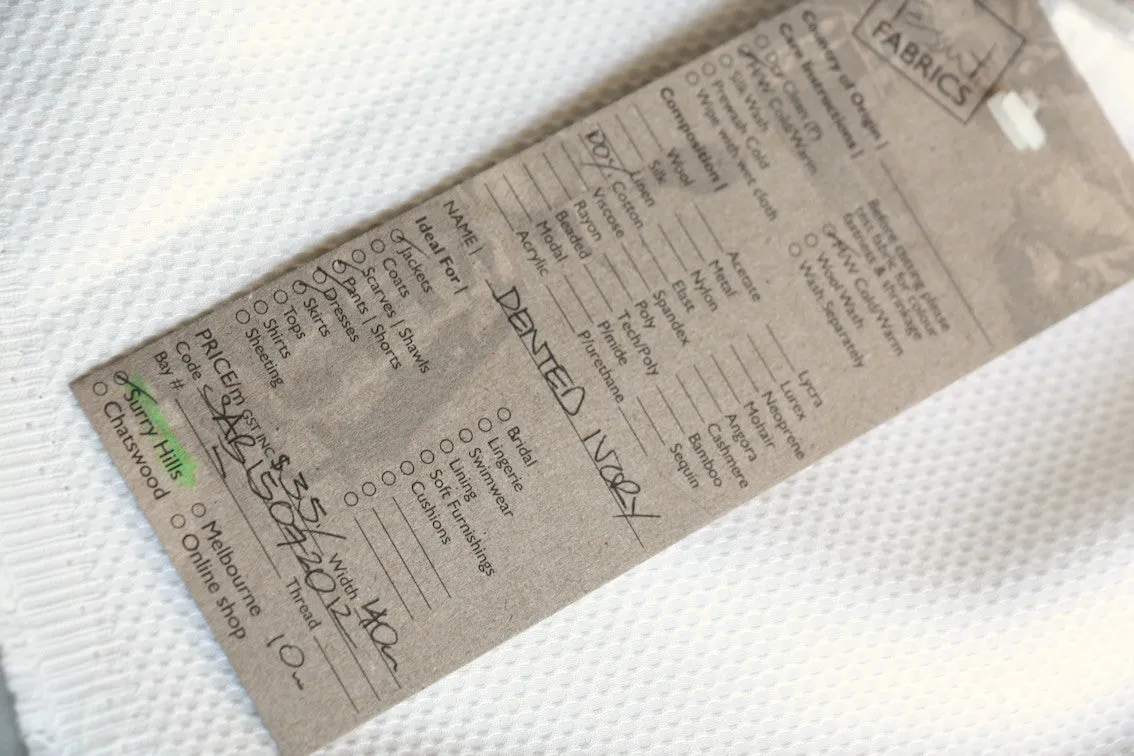 FABRICS
Country of Origin |
Care Instructions |
Dry Clean (P)
HW Cold/Warm
Silk Wash
Prewash Cold
Wipe with wet cloth
Before cutting please
test fabric for colour
fastness & shrinkage
HW Cold/Warm
Wool Wash
Wash Separately
Composition |
Wool
Silk
Linen
100% Cotton
Viscose
Rayon
Beaded
Modal
Acrylic
Acetate
Metal
Nylon
Elast
Spandex
Poly
Tech/Poly
P/mide
P/urethane
Lycra
Lurex
Neoprene
Mohair
Angora
Cashmere
Bamboo
Sequin
NAME | DENTED IVORY
Ideal For |
Jackets
Coats
Scarves | Shawls
Pants | Shorts
Dresses
Skirts
Tops
Shirts
Sheeting
Bridal
Lingerie
Swimwear
Lining
Soft Furnishings
Cushions
PRICE/m GST INC $35/ Width 140
Code SAB15042012 Thread
Bay #
Surry Hills
Chatswood
Melbourne
Online shop